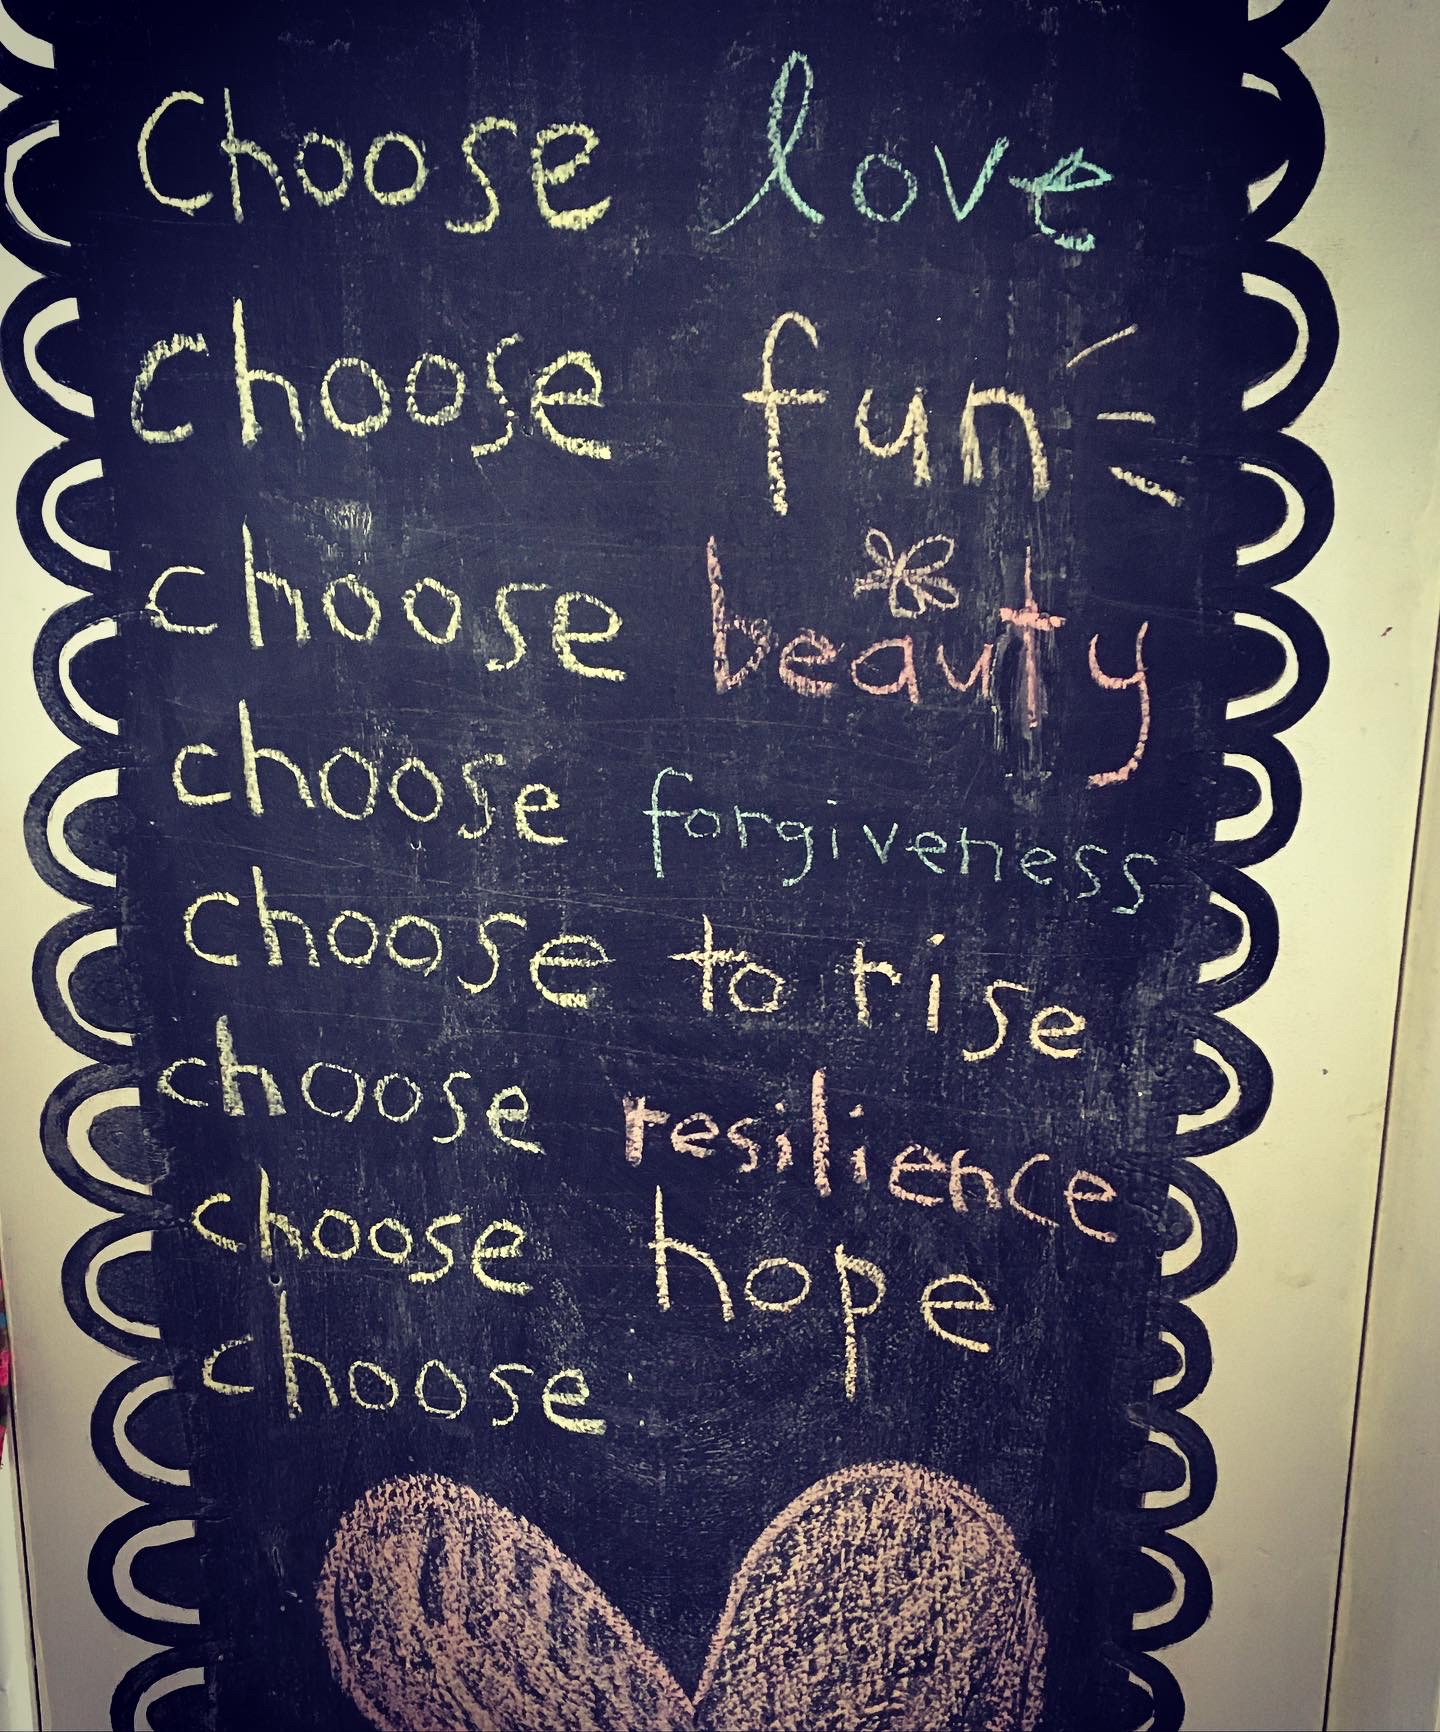 Choose love
choose fun
choose beauty
choose forgiveness
choose to rise
choose resilience
choose hope
choose